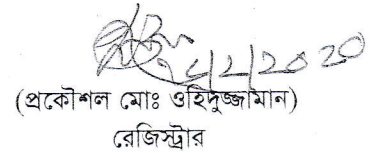 ২/২/2020
(প্রকৌশল মোঃ ওহিদুজ্জামান)
রেজিস্ট্রার